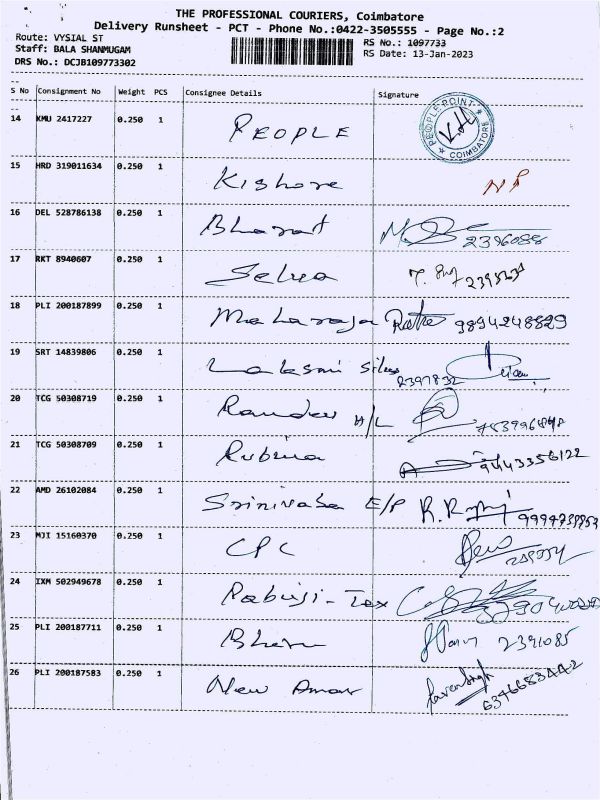 THE PROFESSIONAL COURIERS, Coimbatore
Delivery Runsheet - PCT - Phone No.:0422-3505555 - Page No.:2
Route: VYSIAL ST
Staff: BALA SHANMUGAM
DRS No.: DCJB109773302
RS No.: 1097733
RS Date: 13-Jan-2023
S No Consignment No Weight PCS Consignee Details Signature
14 KMU 2417227 0.250 1 PEOPLE
PEOPLE POINT COIMBATORE
15 HRD 319011634 0.250 1 Kishore
16 DEL 528786138 0.250 1 Bharat 2396088
17 RKT 8940607 0.250 1 Selva
18 PLI 200187899 0.250 1 Maharaja 9894248829
19 SRT 14839806 0.250 1 Laksmi Silks 2397832
20 TCG 50308719 0.250 1 Ramdev H/L
21 TCG 50308709 0.250 1 Rubina 9443356122
22 AMD 26102084 0.250 1 Srinivasa E/P
23 MJI 15160370 0.250 1 CPC
24 IXM 502949678 0.250 1
25 PLI 200187711 0.250 1 2391085
26 PLI 200187583 0.250 1 New Amar 6346683442